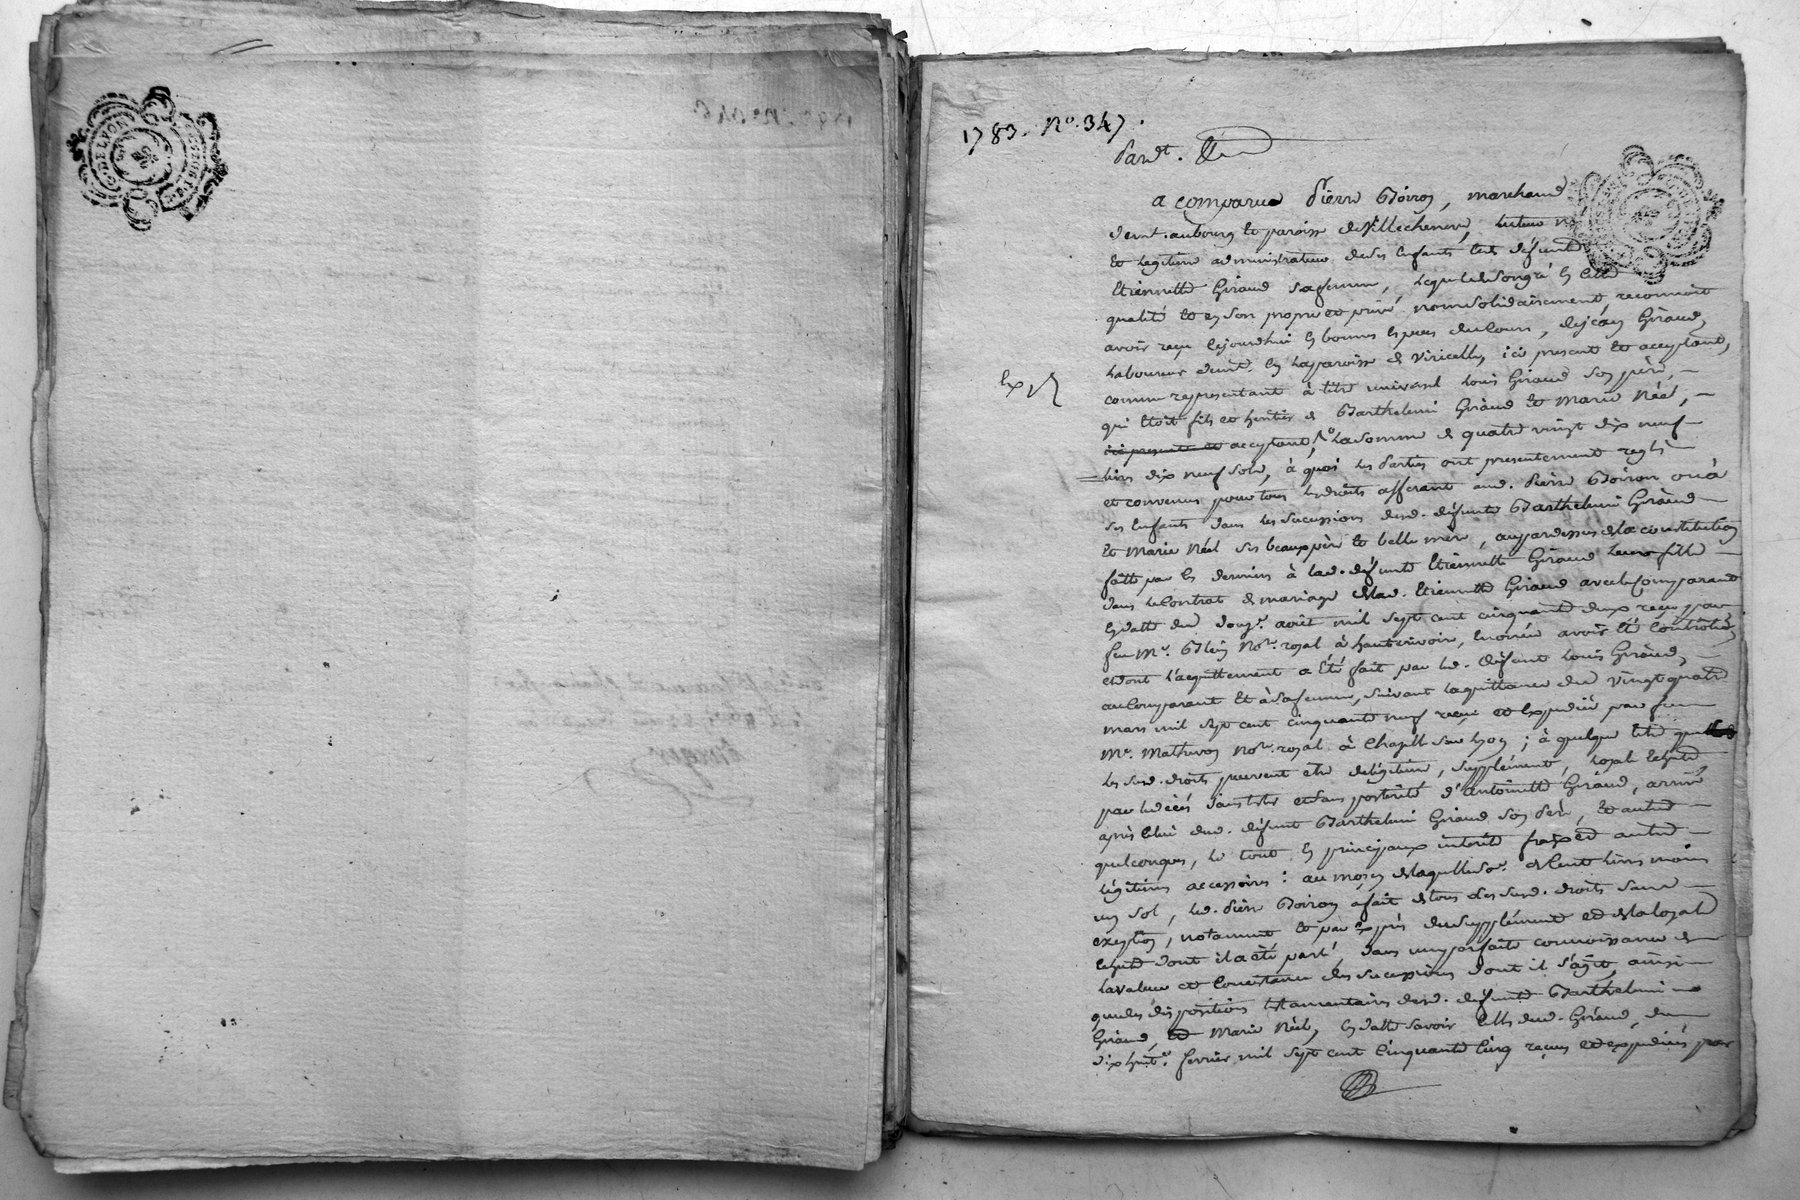 DE LYON
1783. N.º 347.
Pardt.
a comparu Pierre Boiron, marchand
demt. au bourg et paroisse de Villechenève, tuteur
et legitime administrateur de ses Enfants et de défunte
Etiennette Giraud sa femme, lequel de son gré En cette
qualité et En son propre et privé nom solidairement, reconnoit
avoir reçu cejourd'hui En bonnes Especes du Cours, de jean Giraud,
Laboureur demt. En la paroisse de Viricelles, ici present et acceptant,
comme representant à titre universel Louis Giraud son père,
qui Etoit fils et heritier de Barthelemi Giraud et Marie Néel,
ici present et acceptant, la somme de quatre vingt dix neuf
Livres dix neuf sols, à quoi les Parties ont presentement reglé
et convenu pour tous les droits afferant aud. Pierre Boiron ou à
ses Enfants dans les successions desd. défunts Barthelemi Giraud
et Marie Néel ses beau père et belle mère, au pardessus de la constitution
faite par les derniers à lad. défunte Etiennette Giraud leur fille
dans le Contrat de mariage de lad. Etiennette Giraud avec le Comparant
En datte du aoút mil sept cent cinquante deux reçu par
feu Me. Blein Nore. royal à hauterivoire, Enoncé avoir Eté Controlé,
et dont l'acquittement a Eté fait par led. défunt Louis Giraud,
au Comparant et à sa femme, suivant la quittance du vingt quatre
mars mil sept cent cinquante neuf reçue et Expediée par feu
Me. Mathevon Nore. royal à Chazelle sur Lyon ; à quelque titre que
les susd. droits peuvent etre de légitime, supplément, Legitime,
par le décés et sans posterité d'antoinette Giraud, arrivé
après Celui dud. défunt Barthelemi Giraud son Père, et autres
quelconques, le tout En principaux interêts fraix et autres
légitimes accessoires : au moyen de laquelle se. de Cent livres moins
un sol, led. Pierre Boiron a fait de tous les susd. droits sans
exception, notamment et par Exprès du supplément et de la
dont il a été parlé, dans une parfaite connoissance de
la valeur et Consistance des successions dont il s'agit, ainsi
que des dispositions testamentaires desd. défunts Barthelemi
Giraud, et Marie Néel, En datte savoir Celle dud. Giraud, du
dix huite. fevrier mil sept cent Cinquante Cinq reçues et expediées par